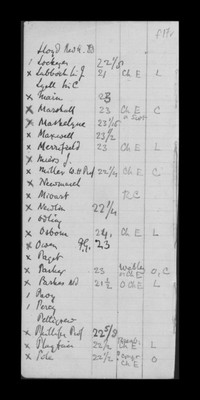 Lloyd Rev. H. D
Lockyer 22 1/8
x Lubbock W. J. 21 Ch E L
Lyell W. C
x Main 23
x Marshall 23 Ch E C
x Maskelyne 23
x Maxwell 23 1/2
x Merrifield 23 Ch E L
x Miers J.
x Miller W. H Prof 22 1/4 Ch E C
x Newmarch
x Mivart RC
x Newton 22 3/4
Odling
x Osborn 24 Ch E L
x Owen 23
x Paget
x Parker 23 O, C
x Parkes MD 21 1/2 O Ch E L
Pavy
Percy
Pettigrew
x Phillips Prof 22 5/8
x Playfair 22 1/2 Ch E L
x Pole 22 1/2 Ch E O